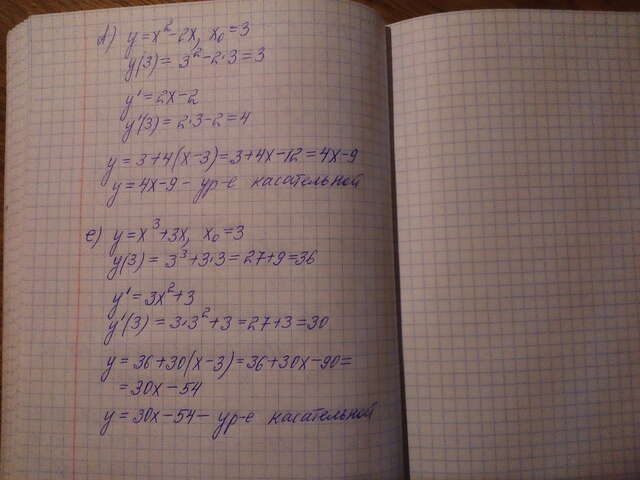 д) y=x²-2x, x₀=3
y(3)= 3²-2·3=3
y'=2x-2
y'(3)=2·3-2=4
y=3+4(x-3)=3+4x-12=4x-9
y=4x-9- ур-е касательной
е) y=x³+3x, x₀=3
y(3)= 3³+3·3=27+9=36
y'=3x²+3
y'(3)=3·3²+3=27+3=30
y=36+30(x-3)=36+30x-90=
=30x-54
y=30x-54- ур-е касательной